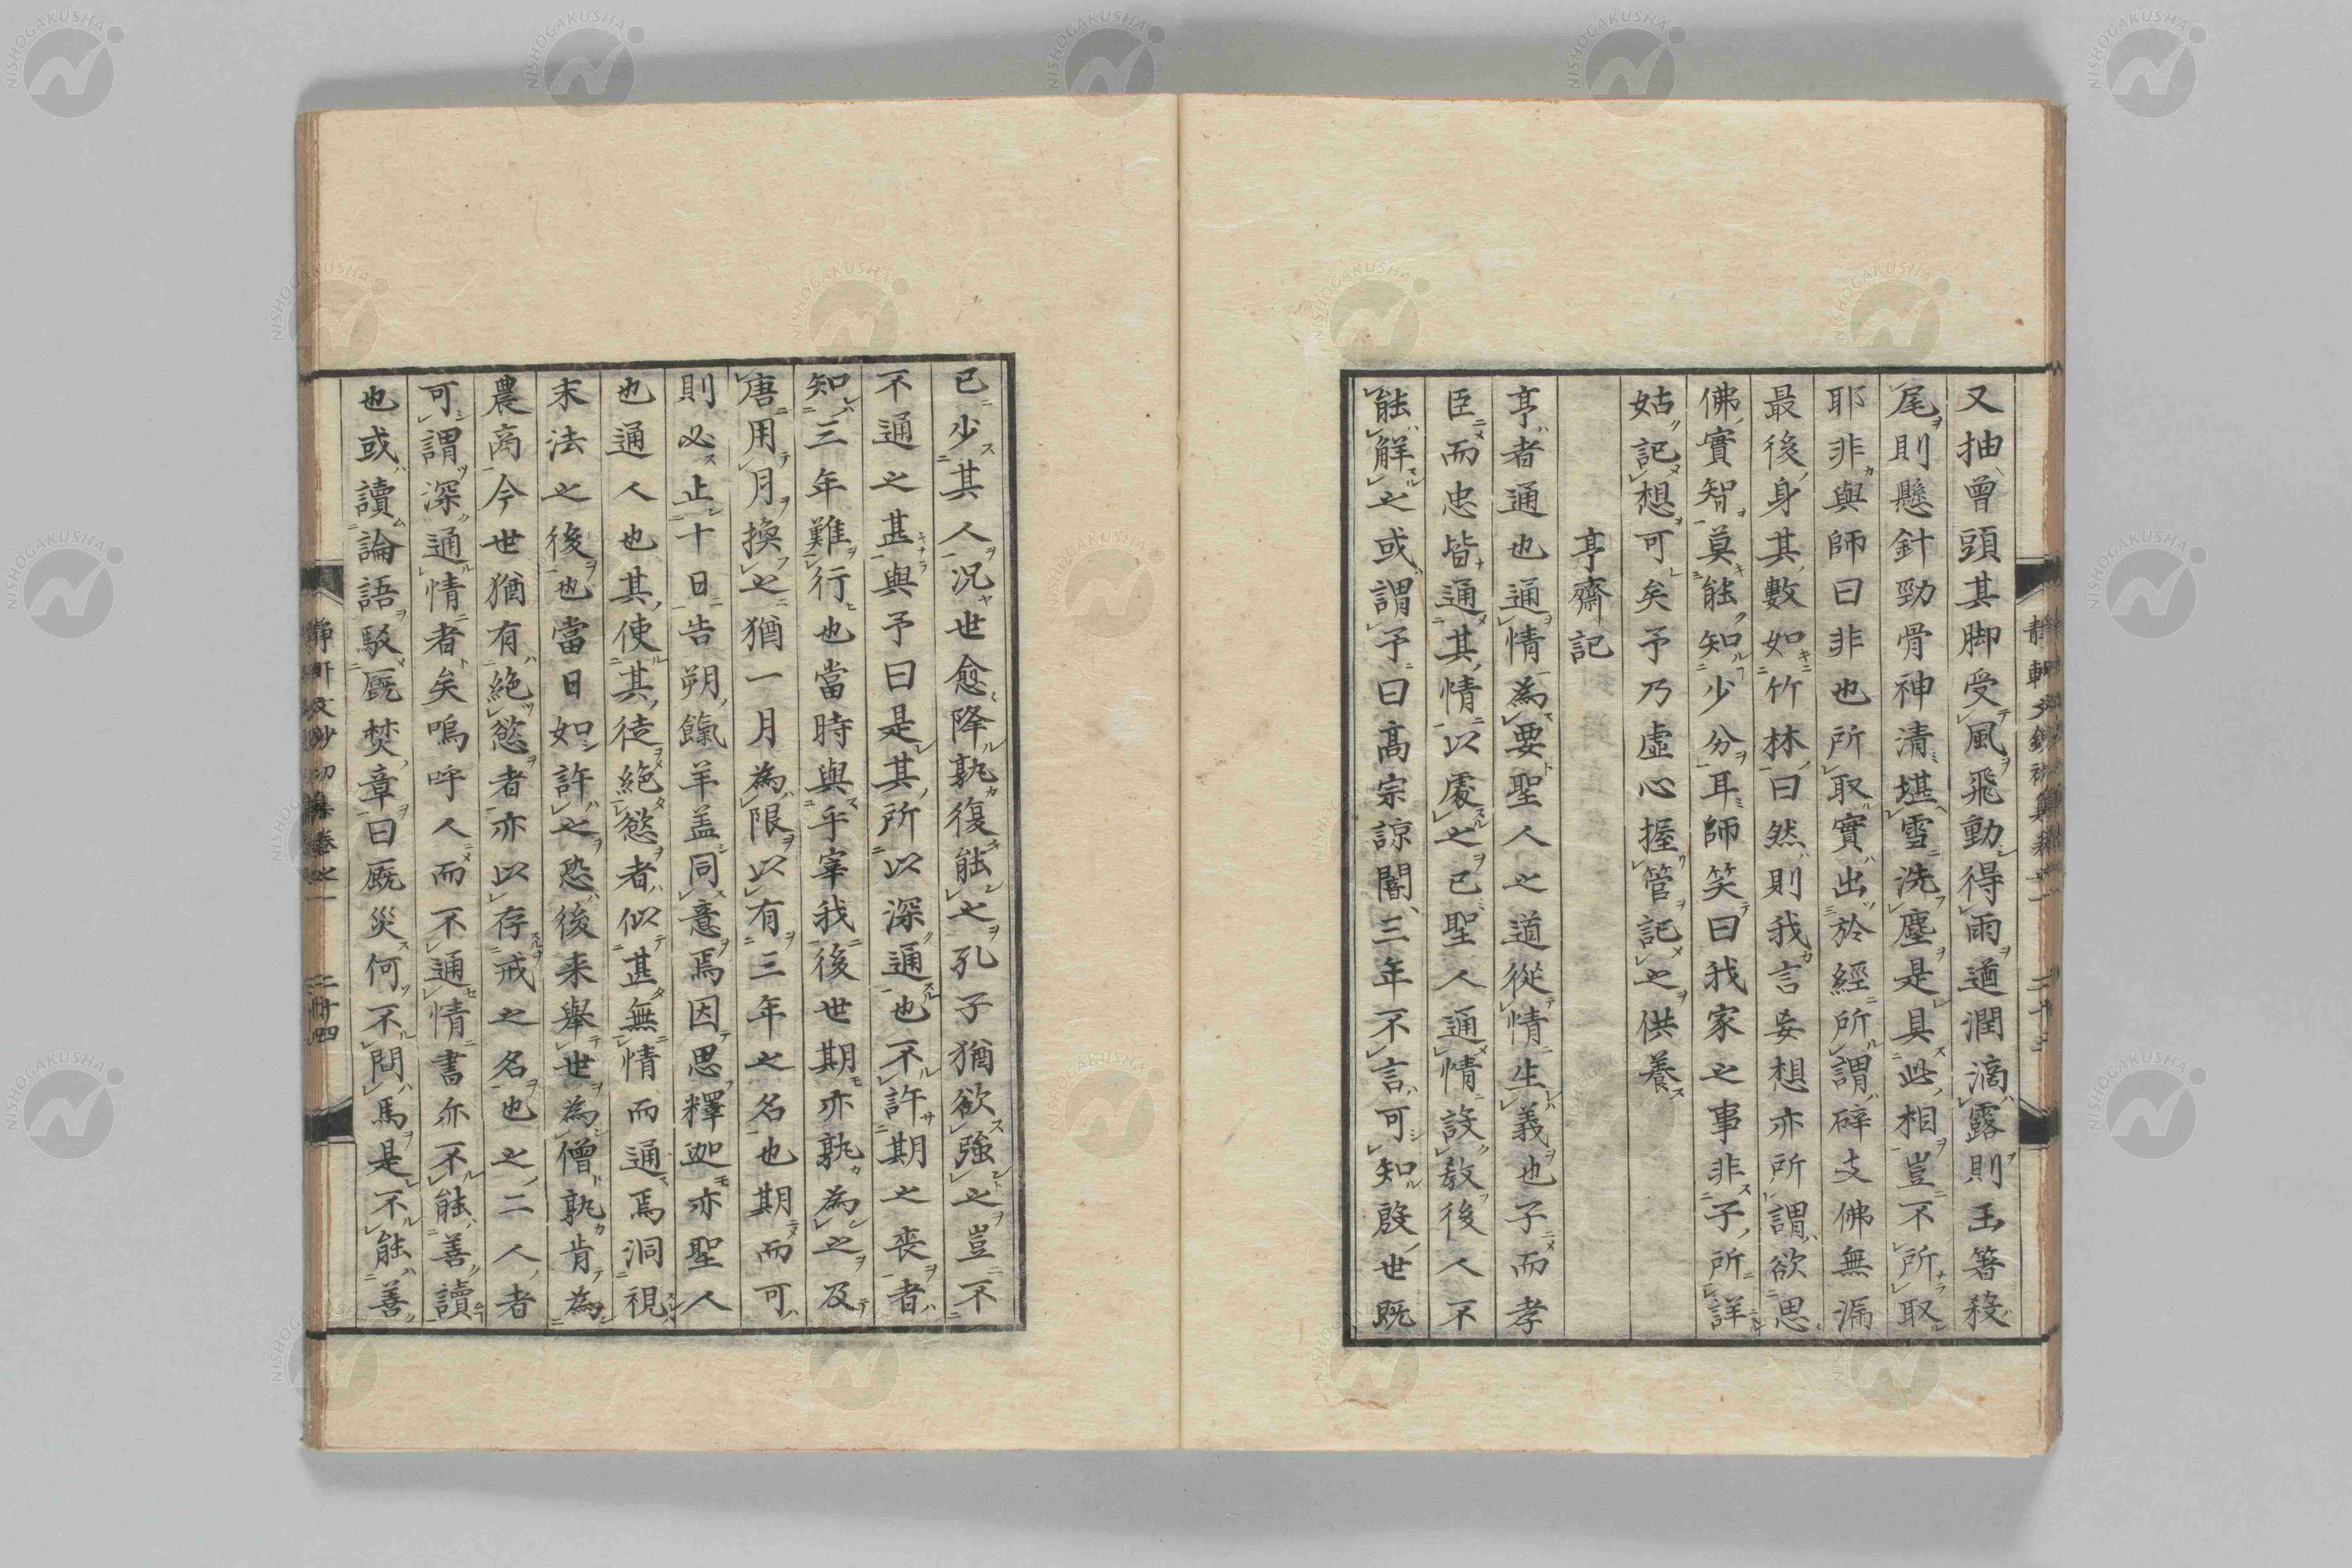 又抽曾頭其脚受風飛動得雨遒潤滴露則玉箸殺
尾則懸針勁骨神清堪雪洗塵是具此相豈不所取
耶非與師曰非也所取實出於經所謂碎支佛無漏
最後身其數如竹林曰然則我言妄想亦所謂欲思
佛實智莫能知少分耳師笑曰我家之事非子所詳
姑記想可矣予乃虛心握管記之供養
亭齋記
亭者通也通情為要聖人之道從情生義也子而孝
臣而忠皆通其情以處之已聖人通情設教後人不
能解之或謂予曰高宗諒闇三年不言可知殷世既
已少其人況世愈降孰復能之孔子猶欲強之豈不
不通之甚與予曰是其所以深通也不許期之喪者
知三年難行也當時與乎宰我後世期亦孰為之及
唐用月換之猶一月為限以有三年之名也期而可
則必止十日告朔餼羊盖同意焉因思釋迦亦聖人
也通人也其使其徒絕慾者似甚無情而通焉洞視
末法之後也當日如許之恐後来舉世為僧孰肯為
農商今世猶有絕慾者亦以存戒之名也之二人者
可謂深通情者矣嗚呼人而不通情書亦不能善讀
也或讀論語駁廐焚章曰廐災何不問馬是不能善
靜軒文鈔初集卷之一
二十三
靜軒文鈔初集卷之一
二十四
NISHOGAKUSHA